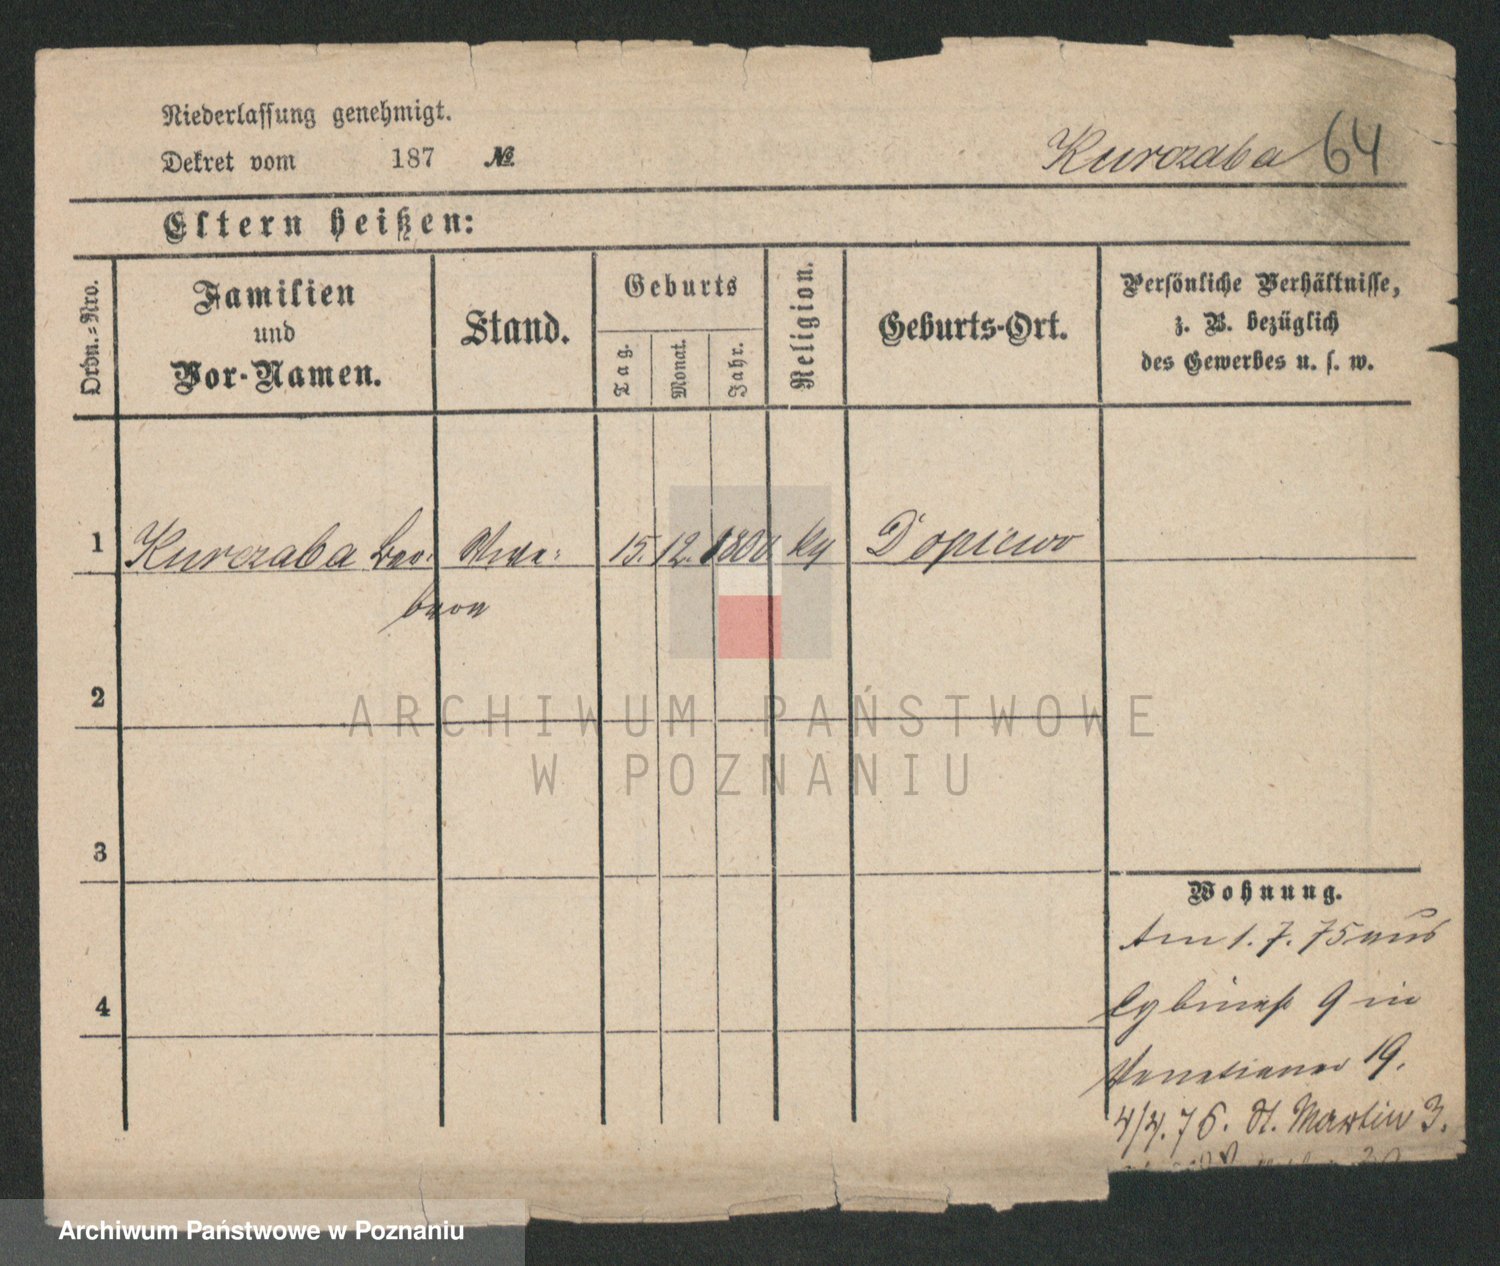 Niederlassung genehmigt.
Dekret vom 187 №
Kurczaba 64
Eltern heißen:
Ordn.=Nro.
Familien
und
Vor-Namen.
Stand.
Geburts
Tag.
Monat.
Jahr.
Religion.
Geburts-Ort.
Persönliche Verhältnisse,
z. B. bezüglich
des Gewerbes u. s. w.
1 Kurczaba Bar: 15. 12. ky Dopiewo
bara
2
3
4
Wohnung.
Am 1. 7. 75 aus
9 in
Venetianer 19.
4/4. 76. St. Martin 3.
ARCHIWUM PAŃSTWOWE
W POZNANIU
Archiwum Państwowe w Poznaniu